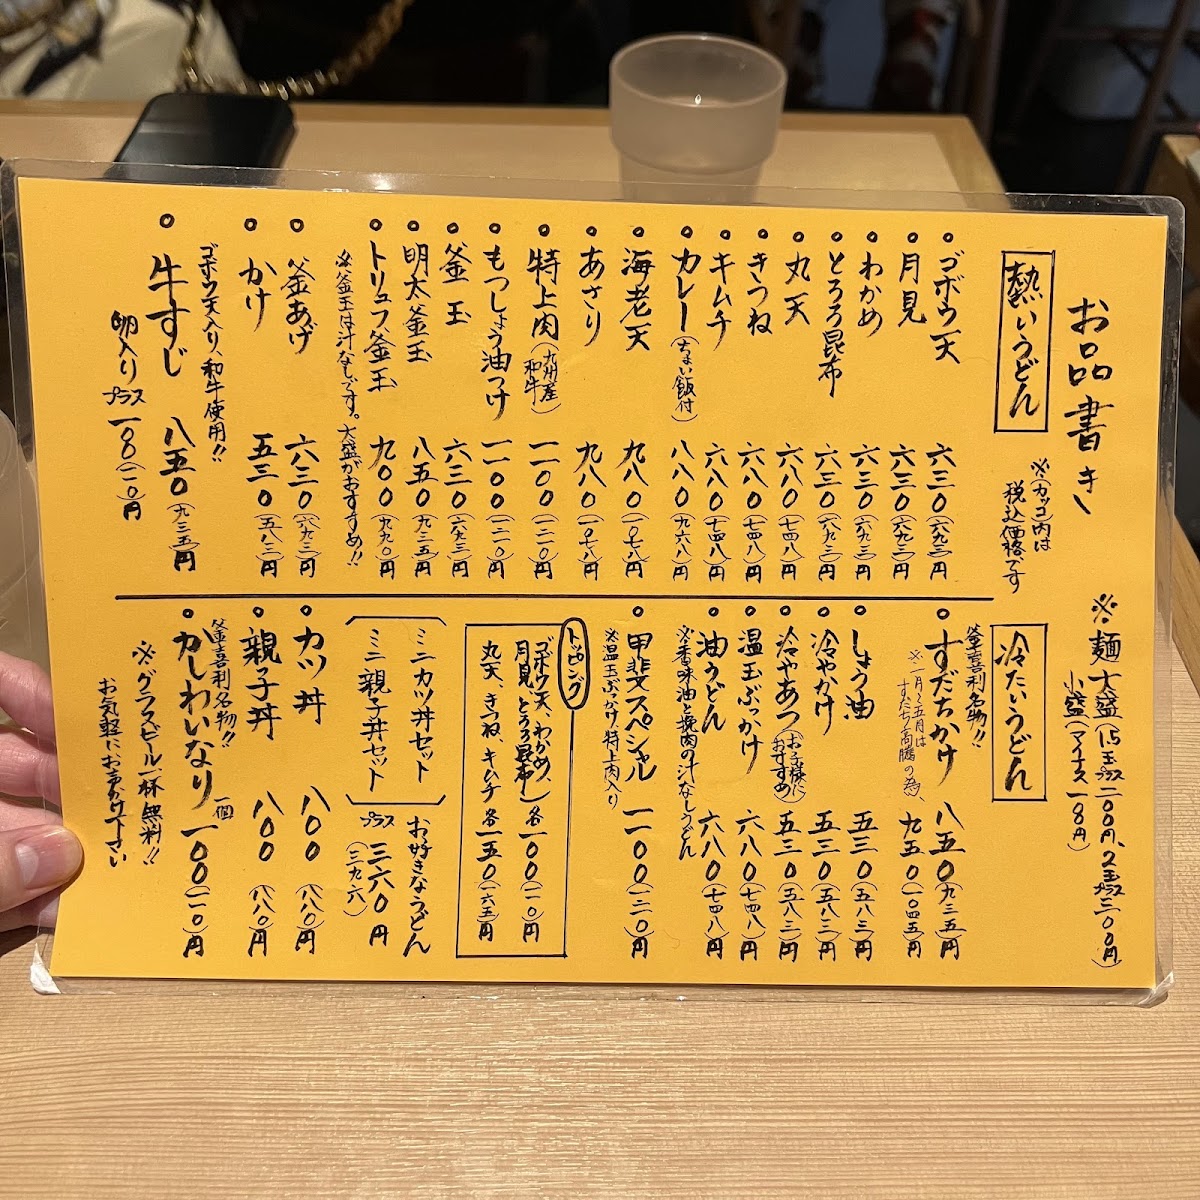 お品書き
※(カッコ)内は
税込価格です
熱いうどん
ゴボウ天 六三〇(六九三)円
月見 六三〇(六九三)円
わかめ 六三〇(六九三)円
とろろ昆布 六三〇(六九三)円
丸天 六八〇(七四八)円
きつね 六八〇(七四八)円
キムチ 六八〇(七四八)円
カレー(ちょい飯付) 八八〇(九六八)円
海老天 九八〇(一〇七八)円
あさり 九八〇(一〇七八)円
特上肉(九州産和牛) 一一〇〇(一二一〇)円
もつしょう油つけ 一一〇〇(一二一〇)円
釜玉 六三〇(六九三)円
明太釜玉 八五〇(九三五)円
トリュフ釜玉 九〇〇(九九〇)円
※釜玉は汁なしです。大盛がおすすめ!!
釜あげ 六三〇(六九三)円
かけ 五三〇(五八三)円
ゴボウ天入り、和牛使用!!
牛すじ 八五〇(九三五)円
卵入りプラス一〇〇(一一〇)円
※麺 大盛(1.5玉プラス二〇〇円、2玉プラス三〇〇円)
小盛(マイナス一〇円)
冷たいうどん
釜喜利名物!!
すだちかけ 八五〇(九三五)円
※二月〜五月はすだち高騰の為、九五〇(一〇四五)円
しょう油 五三〇(五八三)円
冷やかけ 五三〇(五八三)円
冷やあつ(お子様におすすめ) 五三〇(五八三)円
温玉ぶっかけ 六八〇(七四八)円
油うどん 六八〇(七四八)円
※香味油と挽肉の汁なしうどん
甲斐スペシャル 一一〇〇(一二一〇)円
※温玉ぶっかけ、特上肉入り
トッピング
ゴボウ天、わかめ、月見、とろろ昆布 各一〇〇(一一〇)円
丸天、きつね、キムチ 各一五〇(一六五)円
ミニカツ丼セット
ミニ親子丼セット
お好きなうどん
プラス三六〇円
(三九六)
カツ丼 八〇〇(八八〇)円
親子丼 八〇〇(八八〇)円
釜喜利名物!!
かしわいなり 一個 一〇〇(一一〇)円
※グラスビール一杯無料!!
お気軽にお声かけ下さい